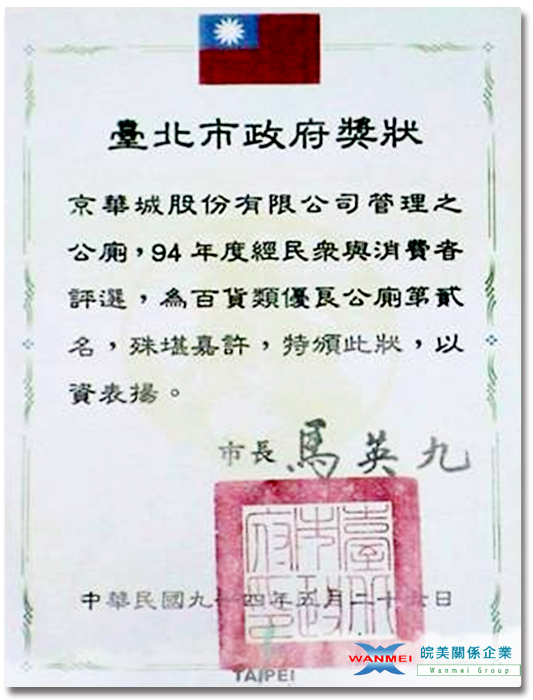 臺北市政府獎狀
京華城股份有限公司管理之
公廁，94 年度經民眾與消費者
評選，為百貨類優良公廁第貳
名，殊堪嘉許，特頒此狀，以
資表揚。
市長 馬英九
臺北市政府印
中華民國九十四年五月二十七日
TAIPEI
WANMEI 皖美關係企業
Wanmei Group